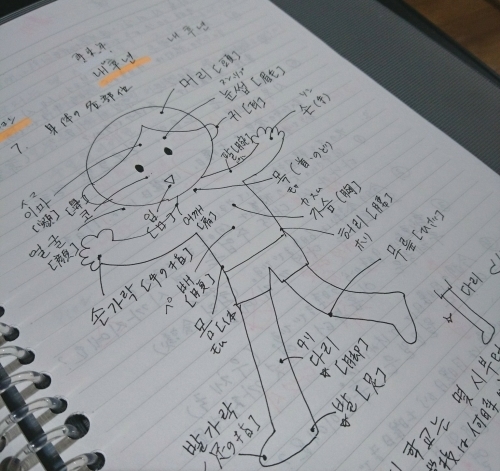 내후년
7. 身体の各部位
머리 [頭]
눈썹 [眉毛]
귀 [耳]
손 (手)
팔 [腕]
목 (首・のど)
가슴 [胸]
허리 [腰]
무릎 [ひざ]
이마 [額]
코 [鼻]
얼굴 [顔]
입 [口]
어깨 [肩]
손가락 [手の指]
배 [腹]
몸 [体]
다리 [脚]
발 [足]
발가락 [足の指]
다리
학교는 몇 시부터